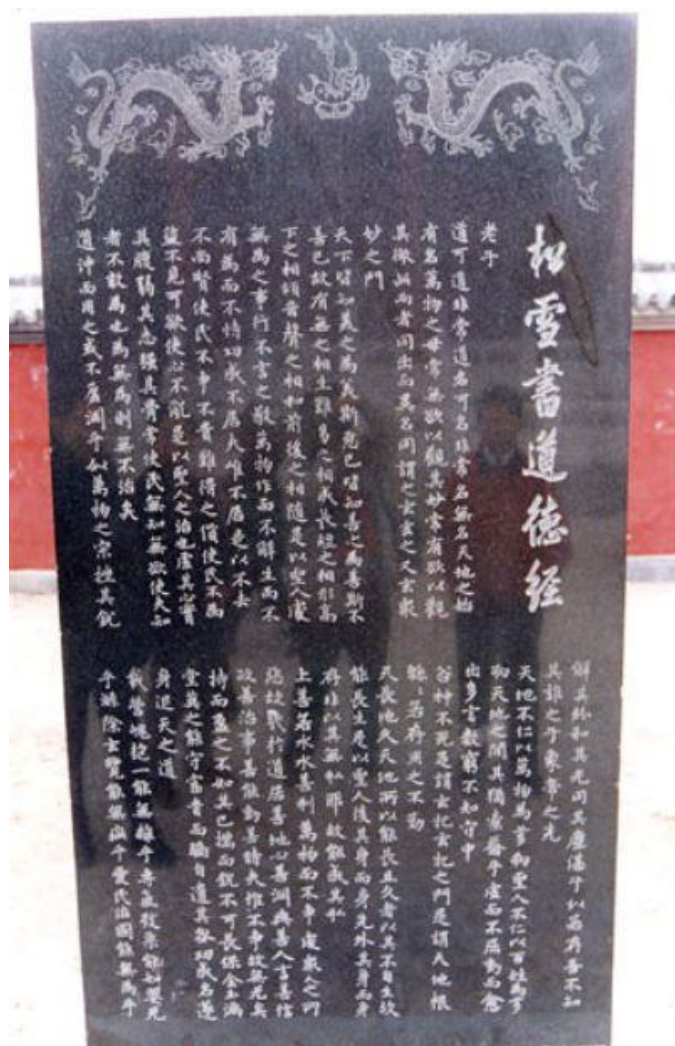 松雪書道德经
老子
道可道非常道名可名非常名無名天地之始
有名萬物之母常無欲以觀其妙常有欲以觀
其徼此两者同出而異名同謂之玄玄之又玄衆
妙之門
天下皆知美之為美斯惡已皆知善之為善斯不
善已故有無之相生難易之相成長短之相形高
下之相傾音聲之相和前後之相随是以聖人處
無為之事行不言之教萬物作而不辭生而不
有為而不恃功成不居夫惟不居是以不去
不尚賢使民不争不貴難得之貨使民不為
盜不見可欲使心不亂是以聖人之治也虛其心實
其腹弱其志强其骨常使民無知無欲使夫知
者不敢為也為無為則無不治矣
道沖而用之或不盈淵乎似萬物之宗挫其銳
解其紛和其光同其塵湛乎似若存吾不知
其誰之子象帝之先
天地不仁以萬物為芻狗聖人不仁以百姓為芻
狗天地之間其猶橐籥乎虛而不屈動而愈
出多言數窮不如守中
谷神不死是謂玄牝玄牝之門是謂天地根
緜〻若存用之不勤
天長地久天地所以能長且久者以其不自生故
能長生是以聖人後其身而身先外其身而身
存非以其無私耶故能成其私
上善若水水善利萬物而不争處衆人之所
惡故幾於道居善地心善淵與善人言善信
政善治事善能動善時夫惟不争故無尤矣
持而盈之不如其已揣而銳不可長保金玉滿
堂莫之能守富貴而驕自遺其咎功成名遂
身退天之道
載營魄抱一能無離乎專氣致柔能如嬰兒
乎滌除玄覽能無疵乎愛民治國能無為乎